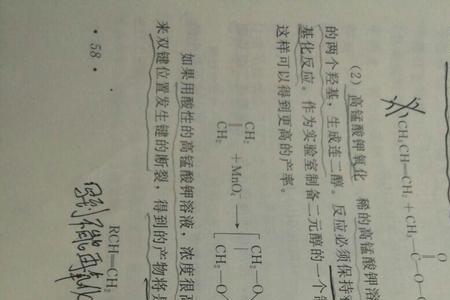 CH₃CH=CH₂ + CH₃—C—O
O
(2) 高锰酸钾氧化 稀的高锰酸钾溶
的两个羟基,生成连二醇。反应必须保持
基化反应。作为实验室制备二元醇的一个
这样可以得到更高的产率。
CH₂ CH₂—O
‖ + MnO₄⁻ → [
CH₂ CH₂—O
如果用酸性的高锰酸钾溶液,浓度很
来双键位置发生键的断裂,得到的产物将
RCH=CH₂
· 58 ·